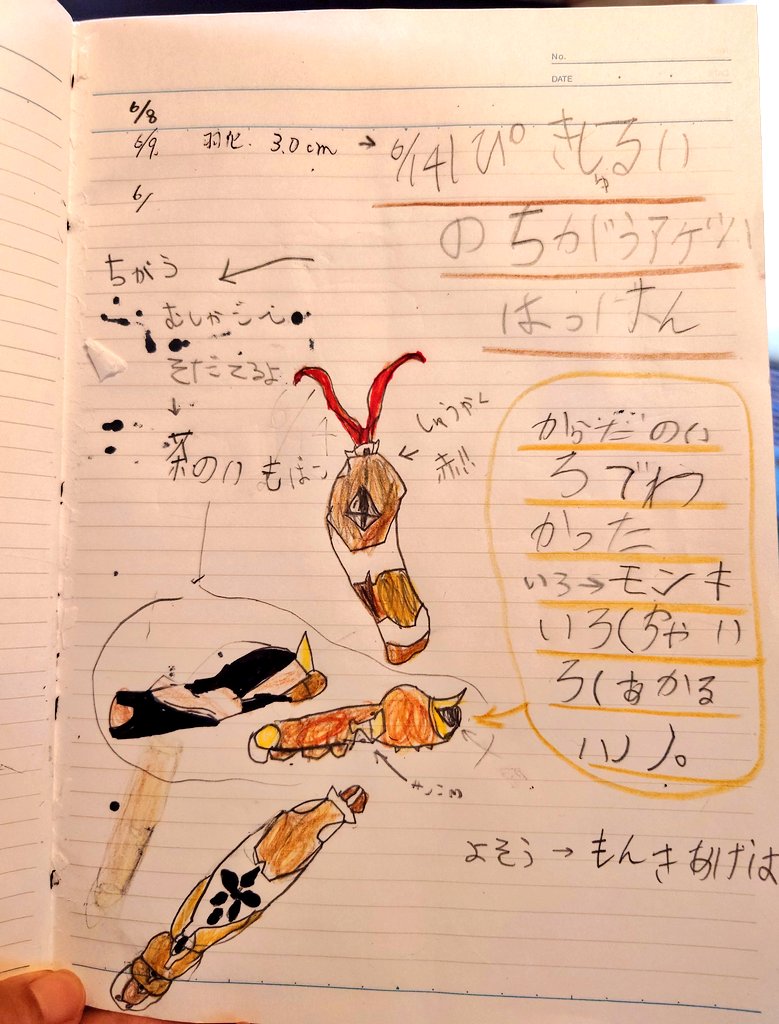 No.
DATE
6/8
6/9 羽化. 3.0cm →
6/
6/14 ぴ きしゅるい
の ちがうアゲハ
はっけん
ちがう
むしかごへ
そだてるよ
↓
茶のいもほう
しゅうかく
赤!!
からだのい
ろでわ
かった
いろ→モンキ
いろ(ちゃい
ろ(あかる
い)ノ。
よそう→もんきあげは